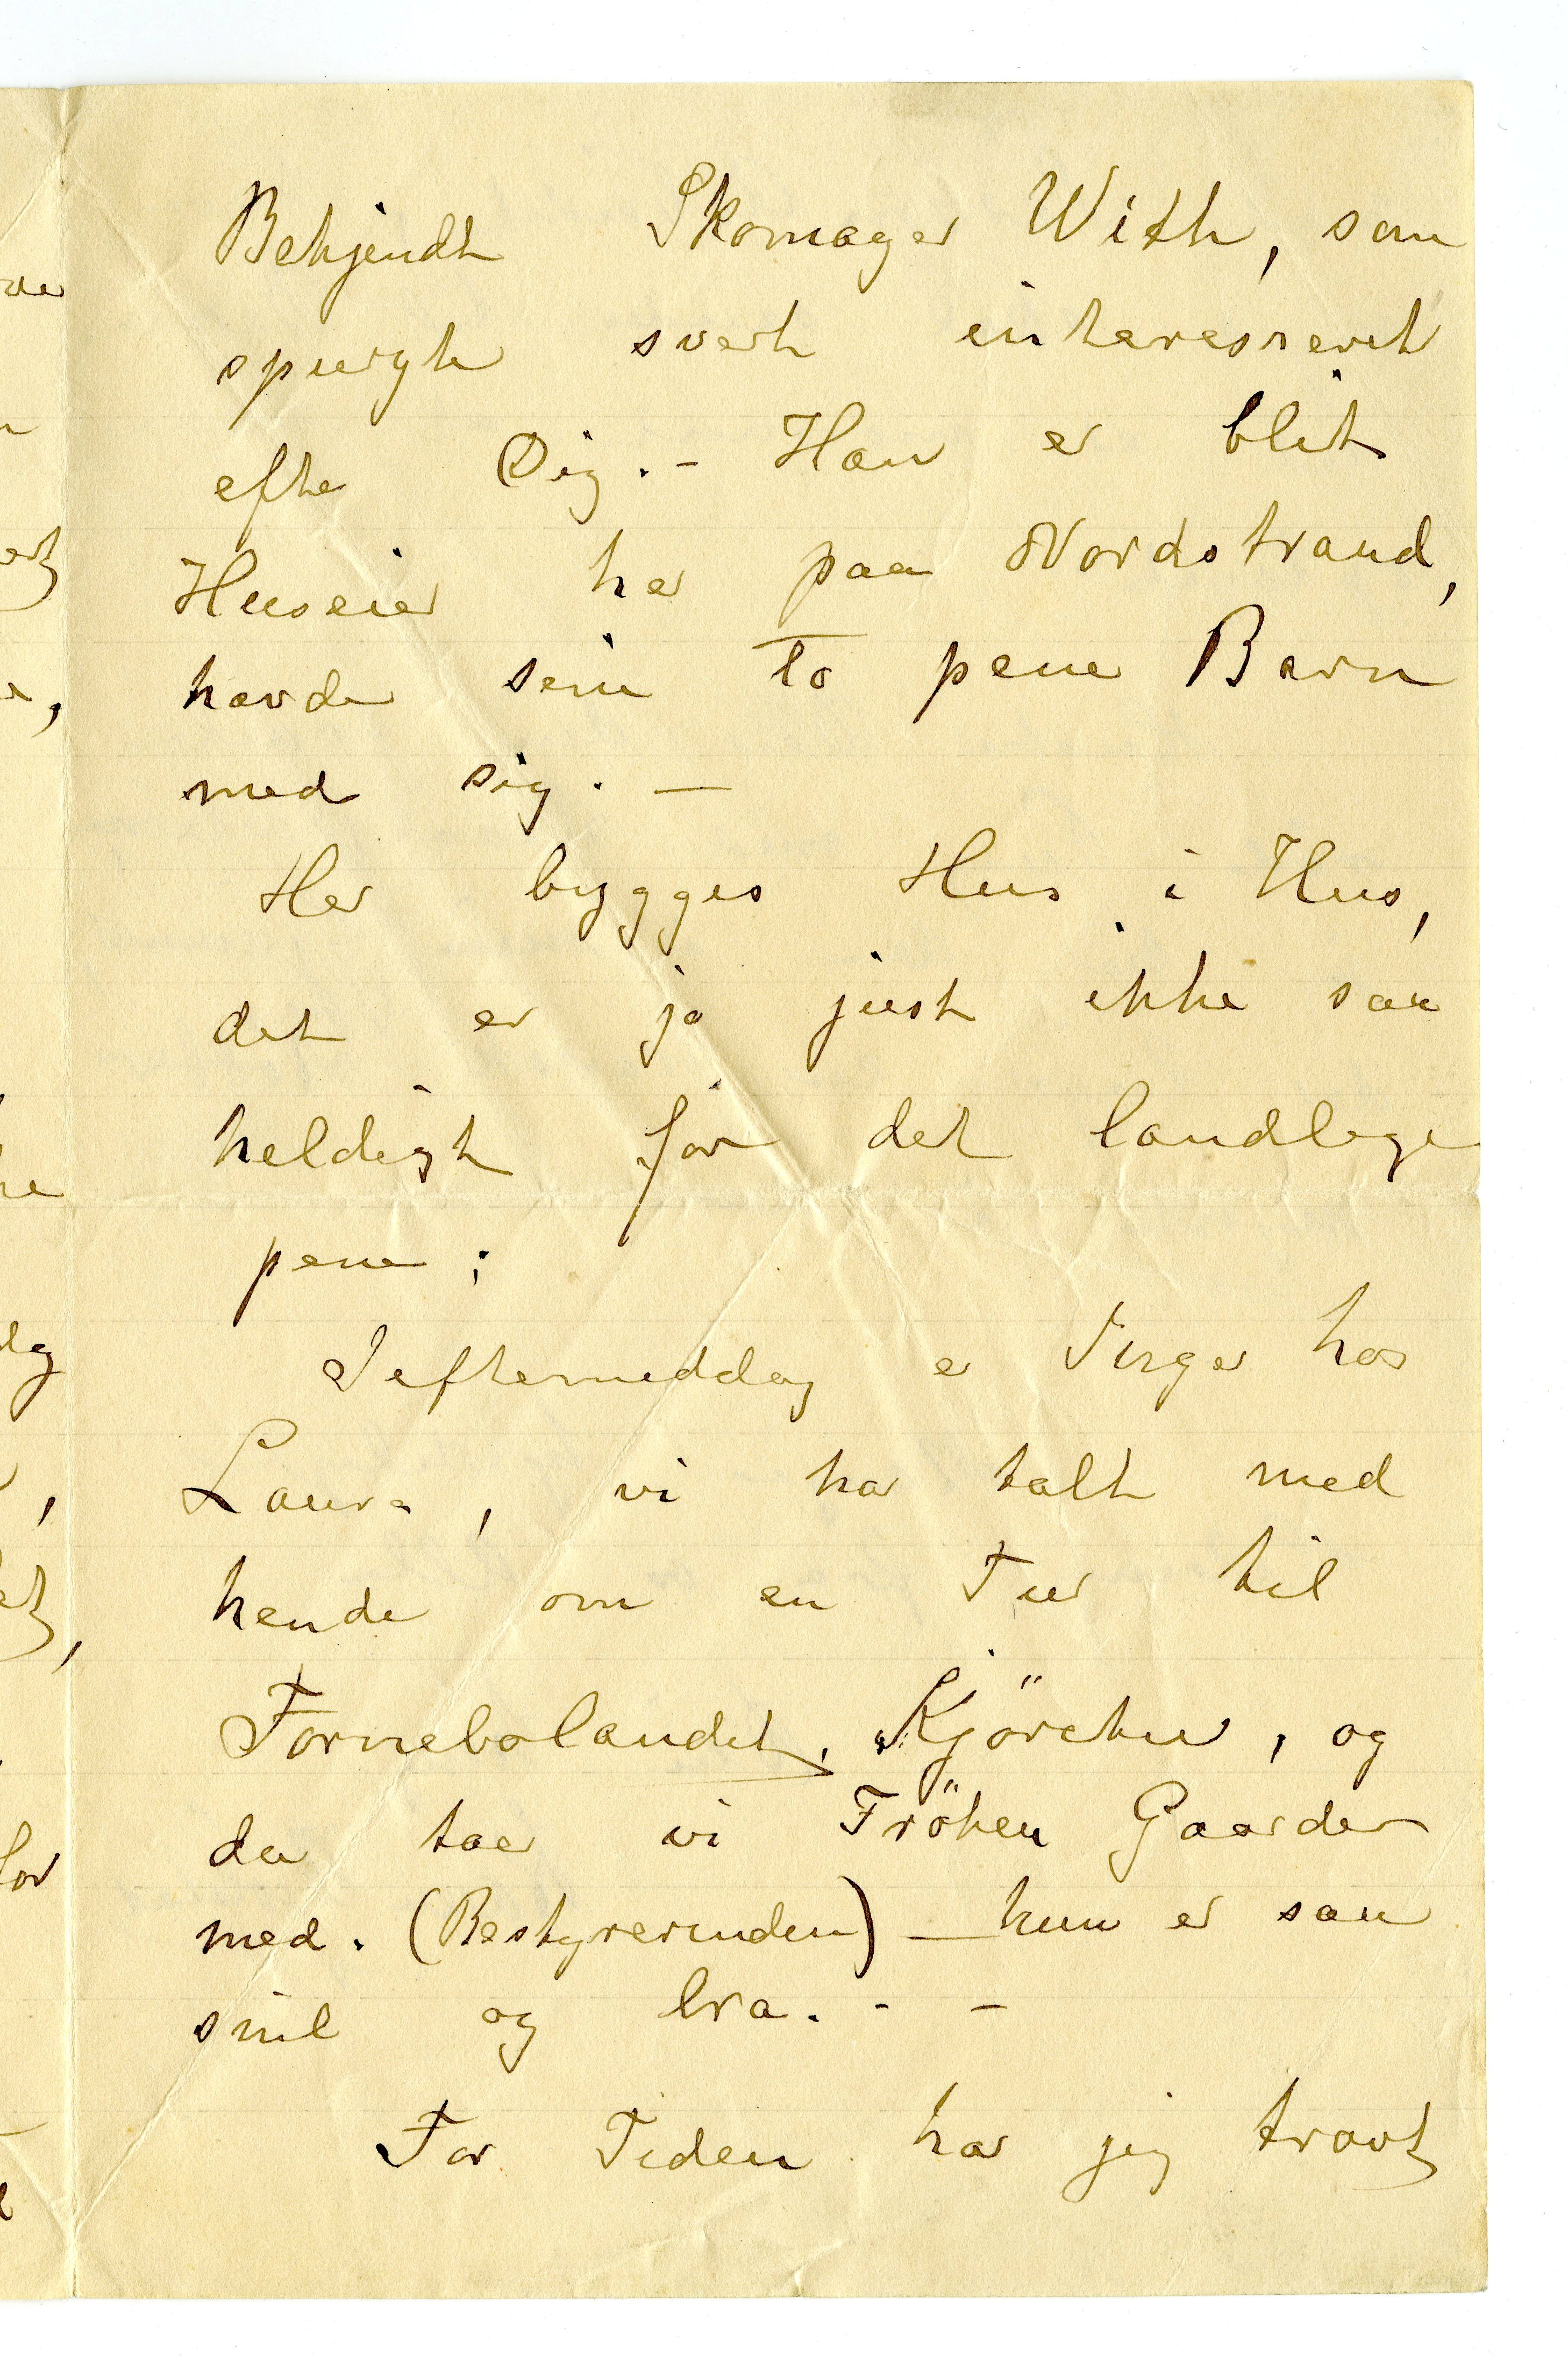 Bekjendt Skomager With, som
spurgte svert interesseret
efter Dig. - Han er blit
Huseier her paa Nordstrand,
havde sine to pene Barn
med sig. —
Her bygges Hus i Hus,
det er jo just ikke saa
heldigt for det landlige
pene ;
Ieftermiddag er Inger hos
Laura, vi har talt med
hende om en Tur til
Fornebolandet, Kjöretur, og
da taer vi Fröken Gaarder
med. (Bestyrerinden) — hun er saa
snil og bra. - -
For Tiden har jeg travlt